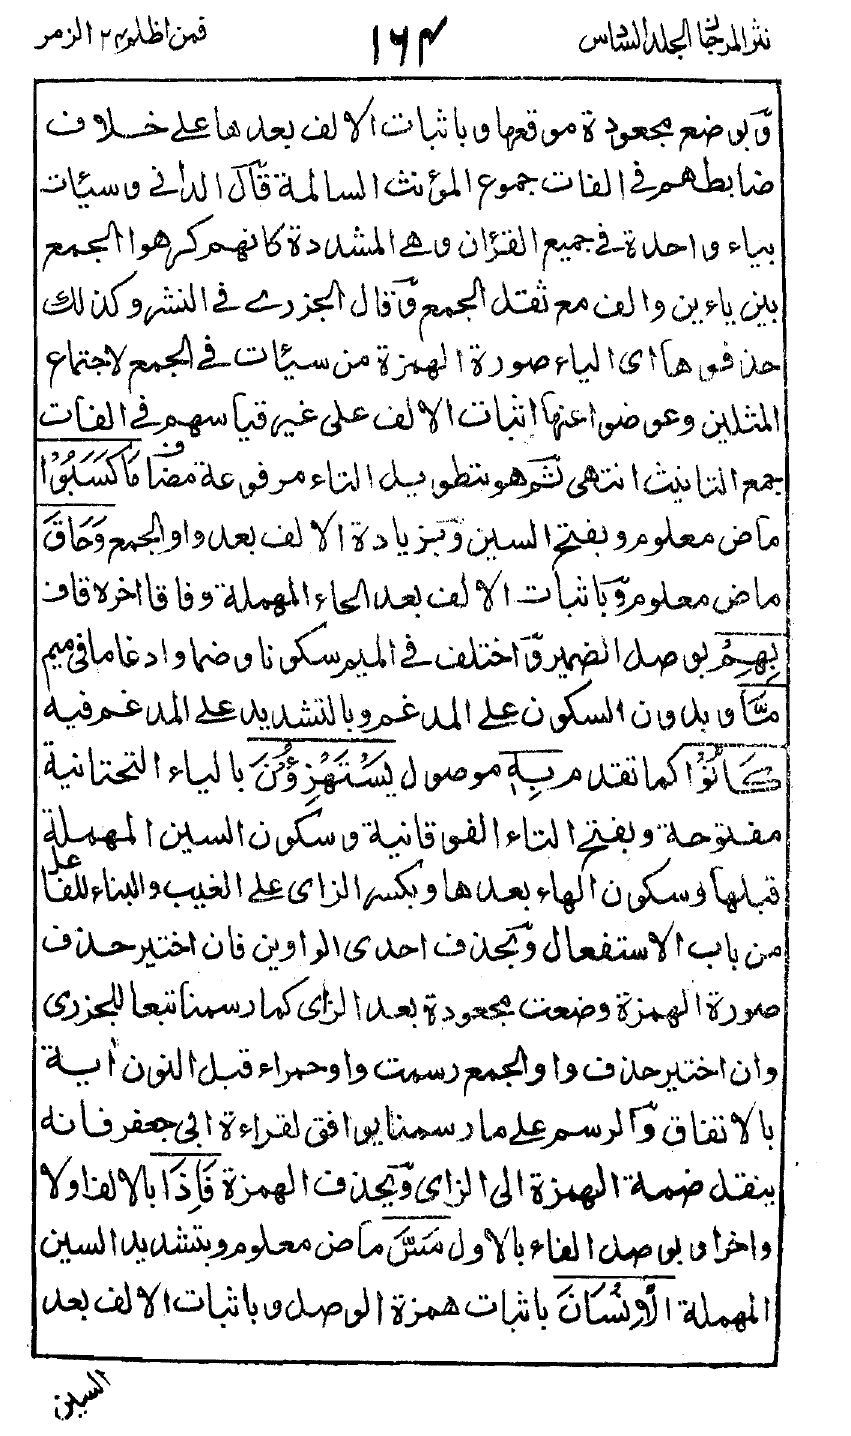 نثر المرجان الجلد السادس ١٦٤ فمن اظلم ٢٤ الزمر
وبوضع مجعودة موقعها وباثبات الالف بعدها على خلاف
ضابطهم فى الفات جموع المؤنث السالمة قال الدانى وسيّات
بياء واحدة فى جميع القرأن وهى المشددة كانهم كرهوا الجمع
بين ياءين والف مع ثقل الجمع وقال الجزرى فى النشر وكذلك
حذفوها اى الياء صورة الهمزة من سيّات فى الجمع لاجتماع
المثلين وعوضوا عنها اثبات الالف على غير قياسهم فى الفات
جمع التانيث انتهى ثم هو بتطويل التاء مرفوعة مضاف مَا كَسَبُوْا
ماض معلوم وبفتح السين وبزيادة الالف بعد واو الجمع وَحَاقَ
ماض معلوم وباثبات الالف بعد الحاء المهملة وفاقا اخره قاف
بِهِمْ بوصل الضمير واختلف فى الميم سكونا وضما وادغاما فى ميم
مَّا وبدون السكون على المدغم وبالتشديد على المدغم فيه
كَانُوْا كما تقدم بِهٖ موصول يَسْتَهْزِءُوْنَ بالياء التحتانية
مفتوحة وبفتح التاء الفوقانية وسكون السين المهملة
قبلها وسكون الهاء بعدها وبكسر الزاى على الغيب والبناء للفاعل
من باب الاستفعال وبحذف احدى الواوين فان اختير حذف
صورة الهمزة وضعت مجعودة بعد الزاى كما رسمنا تبعا للجزرى
وان اختير حذف واو الجمع رسمت واو حمراء قبل النون اٰية
بالاتفاق والرسم على ما رسمنا يوافق لقراءة ابى جعفر فانه
ينقل ضمة الهمزة الى الزاى وبحذف الهمزة فَاِذَا بالالف اولا
واخرا وبوصل الفاء بالاول مَسَّ ماض معلوم وبتشديد السين
المهملة الْاِنْسَانَ باثبات همزة الوصل وباثبات الالف بعد
السين